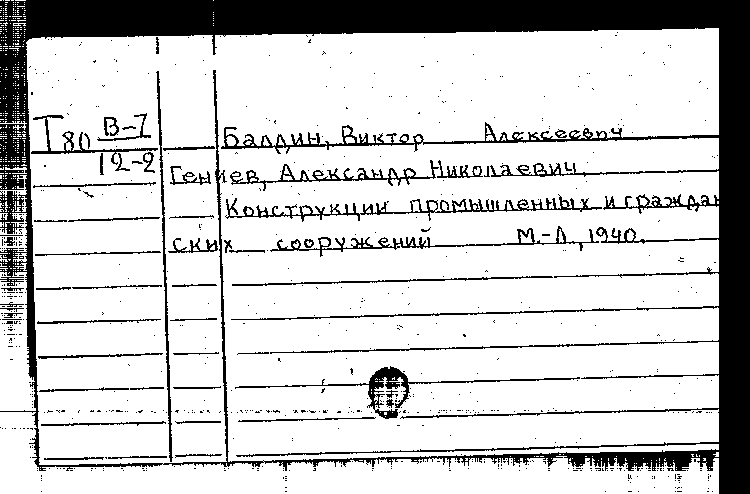 Т80 В-7/12-2
Балдин, Виктор Алексеевич
Гениев, Александр Николаевич.
Конструкции промышленных и граждан
ских сооружений М.-Л., 1940.